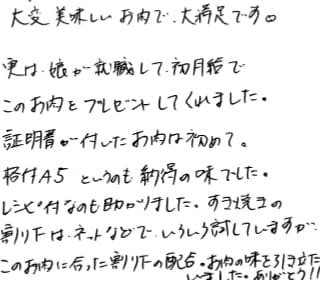 大変美味しいお肉で、大満足です。
実は、娘が就職して、初月給で
このお肉をプレゼントしてくれました。
証明書が付いたお肉は初めて。
格付A5というのも納得の味でした。
レシピ付なのも助かりました。すき焼きの
割り下は、ネットなどで、いろいろ試していますが、
このお肉に合った割り下の配合。お肉の味を引き立た
いました。ありがとう!!